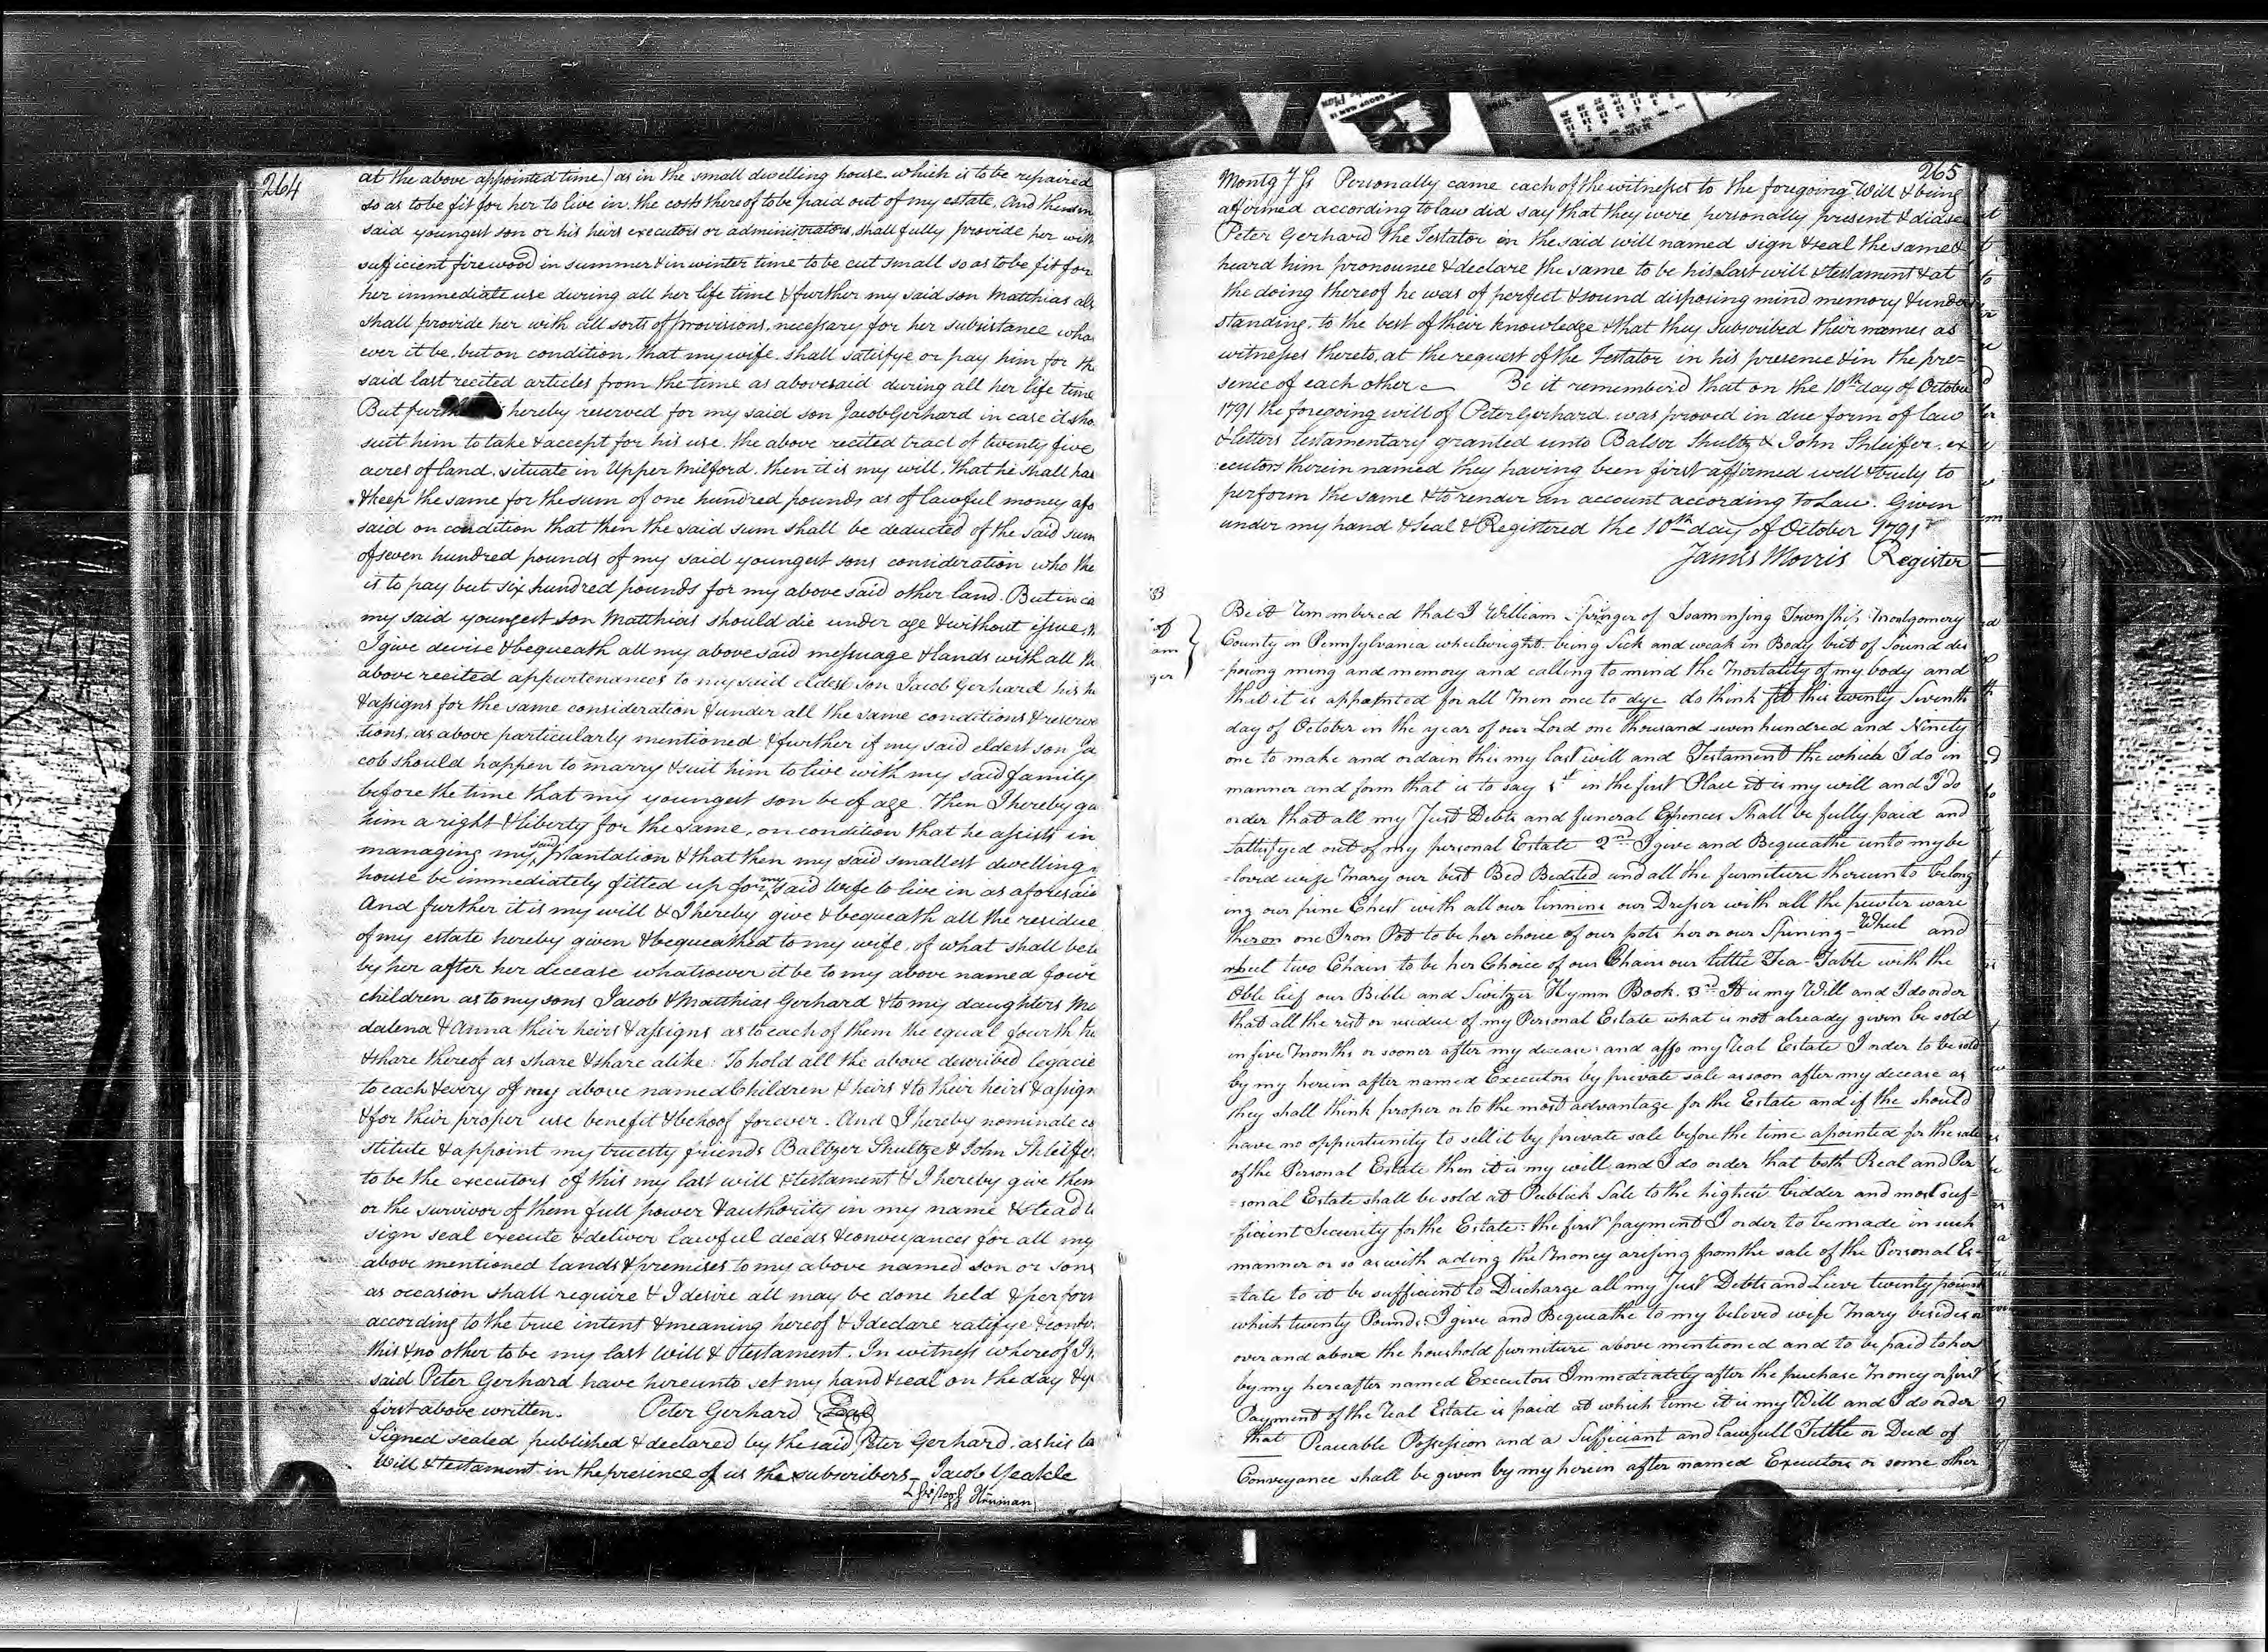 264
at the above appointed time) as in the small dwelling house which is to be repaired
so as to be fit for her to live in. the costs thereof to be paid out of my estate. And then my
said youngest son or his heirs executors or administrators, shall fully provide her with
sufficient firewood in summer & in winter time to be cut small so as to be fit for
her immediate use during all her life time & further my said son Matthias als
shall provide her with all sorts of provisions, necessary for her subsistance wha
ever it be, but on condition, that my wife shall satisfye or pay him for the
said last recited articles from the time as abovesaid during all her life time
But hereby reserved for my said son Jacob Gerhard in case it sho
suit him to take & accept for his use the above recited tract of twenty five
acres of land, situate in Upper Milford, then it is my will, that he shall hav
& keep the same for the sum of one hundred pounds as of lawful money afo
said on condition that then the said sum shall be deducted of the said sum
of seven hundred pounds of my said youngest sons consideration who the
is to pay but six hundred pounds for my above said other land. But in ca
my said youngest son Matthias should die under age & without issue, th
I give devise & bequeath all my above said messuage & lands with all th
above recited appurtenances to my said eldest son Jacob Gerhard his he
& assigns for the same consideration & under all the same conditions & reserva
tions, as above particularly mentioned & further if my said eldest son Ja
cob should happen to marry & suit him to live with my said family
before the time that my youngest son be of age. Then I hereby ga
him a right & liberty for the same, on condition that he assists in
managing my said plantation & that then my said smallest dwelling
house be immediately fitted up for my said wife to live in as aforesaid
And further it is my will & I hereby give & bequeath all the residue
of my estate hereby given & bequeathed to my wife, of what shall be le
by her after her decease whatsoever it be to my above named four
children as to my sons Jacob & Matthias Gerhard & to my daughters Ma
dalena & Anna their heirs & assigns as to each of them the equal fourth
& share thereof as share & share alike. To hold all the above described legacie
to each & every of my above named Children & heirs & to their heirs & assign
& for their proper use benefit & behoof forever. And I hereby nominate co
stitute & appoint my truesty friends Baltzer Shultze & John Shleiffe
to be the executors of this my last will & testament & I hereby give them
or the survivor of them full power & authority in my name & stead to
sign seal execute & deliver lawful deeds & conveyances for all my
above mentioned lands & premises to my above named son or sons
as occasion shall require & I desire all may be done held & perform
according to the true intent & meaning hereof & I declare ratifye & confir
this & no other to be my last Will & testament. In witness whereof I th
said Peter Gerhard have hereunto set my hand & seal on the day & ye
first above written. Peter Gerhard Seal
Signed sealed published & declared by the said Peter Gerhard, as his la
Will & testament in the presence of us the subscribers - Jacob Yeakle
265
Montg Js Personally came each of the witnesses to the foregoing Will & being
affirmed according to law did say that they were personally present & did see
Peter Gerhard the Testator in the said will named sign & seal the same &
heard him pronounce & declare the same to be his last will & testament & at
the doing thereof he was of perfect & sound disposing mind memory & under
standing, to the best of their knowledge & that they subscribed their names as
witnesses thereto, at the request of the Testator in his presence & in the pre=
sence of each other Be it rememberd that on the 10th day of October
1791 the foregoing will of Peter Gerhard was proved in due form of law
& letters testamentary granted unto Balser Shultz & John Shleiffer ex
ecutors therein named they having been first affirmed well & truly to
perform the same & to render an account according to Law. Given
under my hand & seal & Registered the 10th day of October 1791
James Morris Register
Be it Rememberred that I William Springer of Towamensing Township Montgomery
County in Pennsylvania wheelwright. being Sick and weak in Body but of Sound dis
posing ming and memory and calling to mind the Mortality of my body and
that it is appointed for all Men once to dye do think fit this twenty Seventh
day of October in the year of our Lord one thousand seven hundred and Ninety
one to make and ordain this my last will and Testament the which I do in
manner and form that is to say 1st in the first Place it is my will and I do
order that all my Just Debts and funeral Expences Shall be fully paid and
Sattisfyed out of my personal Estate 2nd I give and Bequeathe unto my be
=loved wife Mary our best Bed Bedsted and all the furniture thereunto belong
ing our pine Chest with all our linnins our Dresser with all the pewter ware
theron one Iron Pot to be her choice of our pots her or our Spining-Wheel and
wheel two Chairs to be her Choice of our Chairs our little Tea-Table with the
our Bible and Switzer Hymn Book. 3rd It is my Will and I do order
that all the rest or residue of my Personal Estate what is not already given be sold
in five Months or sooner after my decease and also my Real Estate I order to be sold
by my herein after named Executors by private sale as soon after my decease as
they shall think proper or to the most advantage for the Estate and if the should
have no oppurtunity to sell it by private sale before the time apointed for the sale
of the Personal Estate then it is my will and I do order that both Real and Per
=sonal Estate shall be sold at Publick Sale to the highest bidder and most suf=
ficient Security for the Estate: the first payment I order to be made in such
manner or so as with ading the Money arising from the sale of the Personal Es=
=tate to it be sufficient to Discharge all my Just Debts and Lieve twenty pound
which twenty Pounds I give and Bequeathe to my beloved wife Mary besides or
over and above the houshold furniture above mentioned and to be paid to her
by my hereafter named Executors Immediately after the purchase Money or first
Payment of the Real Estate is paid at which time it is my Will and I do order
that Peaceable Possession and a Sufficiant and lawfull Tittle or Deed of
Conveyance shall be given by my herein after named Executors or some other